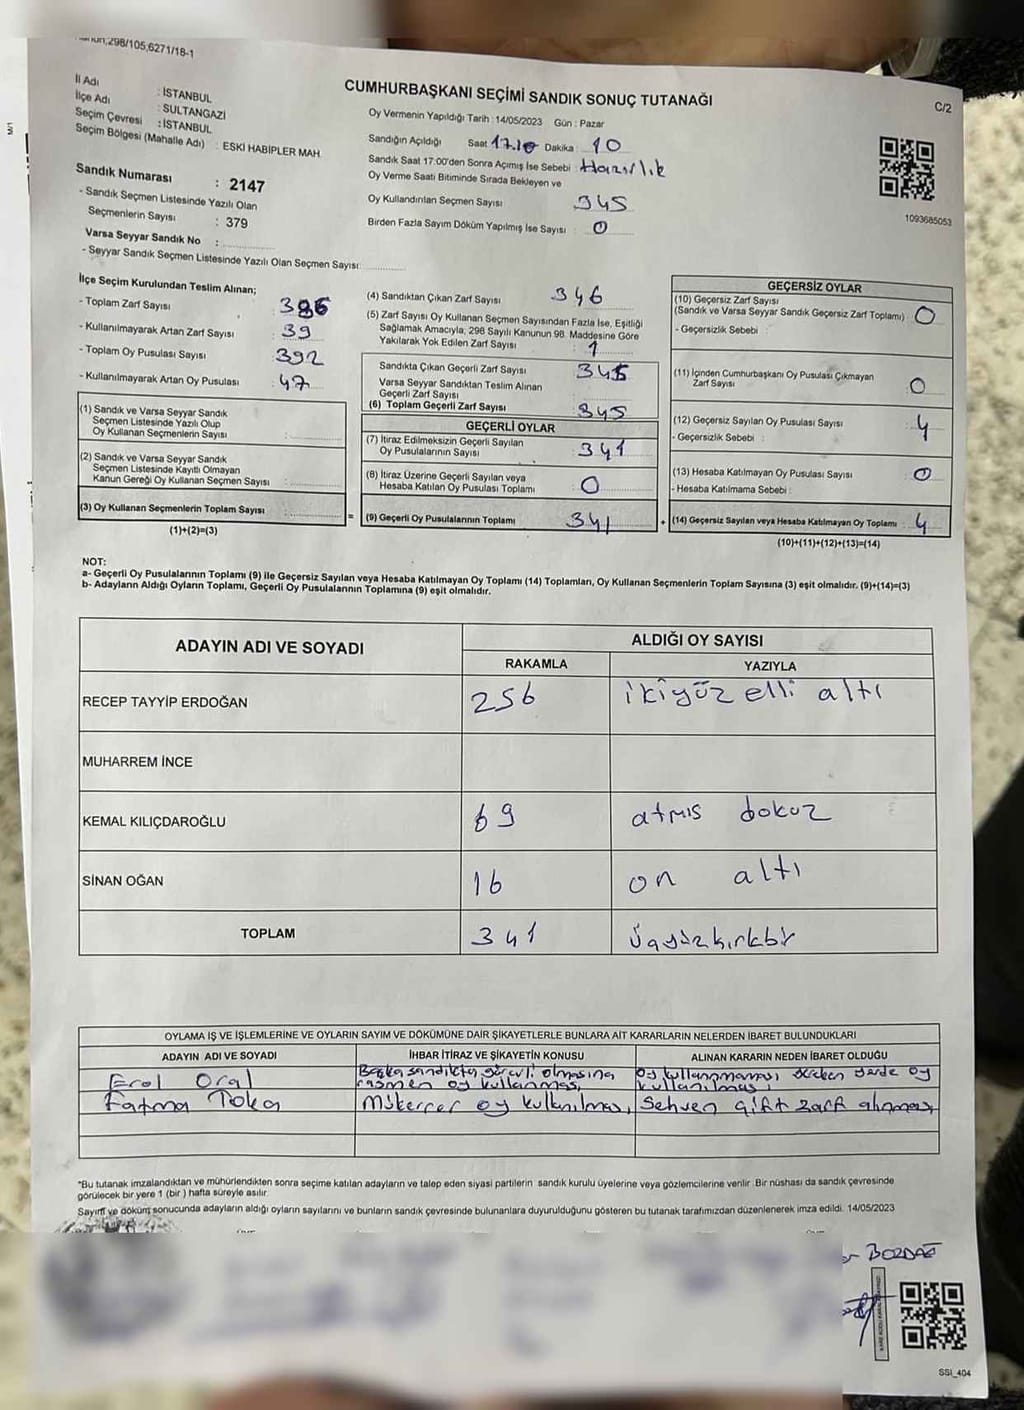 298/105,6271/18-1
CUMHURBAŞKANI SEÇİMİ SANDIK SONUÇ TUTANAĞI
C/2
M/1
İl Adı : İSTANBUL
İlçe Adı : SULTANGAZİ
Seçim Çevresi : İSTANBUL
Seçim Bölgesi (Mahalle Adı) : ESKİ HABİPLER MAH.
Sandık Numarası : 2147
- Sandık Seçmen Listesinde Yazılı Olan
Seçmenlerin Sayısı : 379
Varsa Seyyar Sandık No :
- Seyyar Sandık Seçmen Listesinde Yazılı Olan Seçmen Sayısı:
Oy Vermenin Yapıldığı Tarih : 14/05/2023 Gün : Pazar
Sandığın Açıldığı Saat 17.10 Dakika : 10
Sandık Saat 17:00'den Sonra Açımış İse Sebebi : Hazırlık
Oy Verme Saati Bitiminde Sırada Bekleyen ve
Oy Kullandırılan Seçmen Sayısı 345
Birden Fazla Sayım Döküm Yapılmış İse Sayısı : 0
1093685053
İlçe Seçim Kurulundan Teslim Alınan;
- Toplam Zarf Sayısı : 386
- Kullanılmayarak Artan Zarf Sayısı : 39
- Toplam Oy Pusulası Sayısı : 392
- Kullanılmayarak Artan Oy Pusulası : 47
(1) Sandık ve Varsa Seyyar Sandık
Seçmen Listesinde Yazılı Olup
Oy Kullanan Seçmenlerin Sayısı :
(2) Sandık ve Varsa Seyyar Sandık
Seçmen Listesinde Kayıtlı Olmayan
Kanun Gereği Oy Kullanan Seçmen Sayısı :
(3) Oy Kullanan Seçmenlerin Toplam Sayısı :
(1)+(2)=(3)
(4) Sandıktan Çıkan Zarf Sayısı : 346
(5) Zarf Sayısı Oy Kullanan Seçmen Sayısından Fazla İse, Eşitliği
Sağlamak Amacıyla, 298 Sayılı Kanunun 98. Maddesine Göre
Yakılarak Yok Edilen Zarf Sayısı : 1
Sandıkta Çıkan Geçerli Zarf Sayısı : 345
Varsa Seyyar Sandıktan Teslim Alınan
Geçerli Zarf Sayısı :
(6) Toplam Geçerli Zarf Sayısı : 345
GEÇERLİ OYLAR
(7) İtiraz Edilmeksizin Geçerli Sayılan
Oy Pusulalarının Sayısı : 341
(8) İtiraz Üzerine Geçerli Sayılan veya
Hesaba Katılan Oy Pusulası Toplamı : 0
= (9) Geçerli Oy Pusulalarının Toplamı : 341
GEÇERSİZ OYLAR
(10) Geçersiz Zarf Sayısı
(Sandık ve Varsa Seyyar Sandık Geçersiz Zarf Toplamı) : 0
- Geçersizlik Sebebi :
(11) İçinden Cumhurbaşkanı Oy Pusulası Çıkmayan
Zarf Sayısı : 0
(12) Geçersiz Sayılan Oy Pusulası Sayısı : 4
- Geçersizlik Sebebi :
(13) Hesaba Katılmayan Oy Pusulası Sayısı : 0
- Hesaba Katılmama Sebebi :
+ (14) Geçersiz Sayılan veya Hesaba Katılmayan Oy Toplamı : 4
(10)+(11)+(12)+(13)=(14)
NOT:
a- Geçerli Oy Pusulalarının Toplamı (9) ile Geçersiz Sayılan veya Hesaba Katılmayan Oy Toplamı (14) Toplamları, Oy Kullanan Seçmenlerin Toplam Sayısına (3) eşit olmalıdır. (9)+(14)=(3)
b- Adayların Aldığı Oyların Toplamı, Geçerli Oy Pusulalarının Toplamına (9) eşit olmalıdır.
ADAYIN ADI VE SOYADI ALDIĞI OY SAYISI
RAKAMLA YAZIYLA
RECEP TAYYİP ERDOĞAN 256 ikiyüz elli altı
MUHARREM İNCE
KEMAL KILIÇDAROĞLU 69 atmıs dokuz
SİNAN OĞAN 16 on altı
TOPLAM 341 üçyüzkırkbir
OYLAMA İŞ VE İŞLEMLERİNE VE OYLARIN SAYIM VE DÖKÜMÜNE DAİR ŞİKAYETLERLE BUNLARA AİT KARARLARIN NELERDEN İBARET BULUNDUKLARI
ADAYIN ADI VE SOYADI İHBAR İTİRAZ VE ŞİKAYETİN KONUSU ALINAN KARARIN NEDEN İBARET OLDUĞU
Erol Oral Başka sandıkta görevli olmasına rağmen oy kullanması, oy kullanmaması gereken yerde oy kullanılması,
Fatma Toka Mükerrer oy kullanılması, Sehven çift zarf alınması,
*Bu tutanak imzalandıktan ve mühürlendikten sonra seçime katılan adayların ve talep eden siyasi partilerin sandık kurulu üyelerine veya gözlemcilerine verilir. Bir nüshası da sandık çevresinde
görülecek bir yere 1 (bir ) hafta süreyle asılır.
Sayım ve döküm sonucunda adayların aldığı oyların sayılarını ve bunların sandık çevresinde bulunanlara duyurulduğunu gösteren bu tutanak tarafımızdan düzenlenerek imza edildi. 14/05/2023
BOZDAĞ
SSI_404